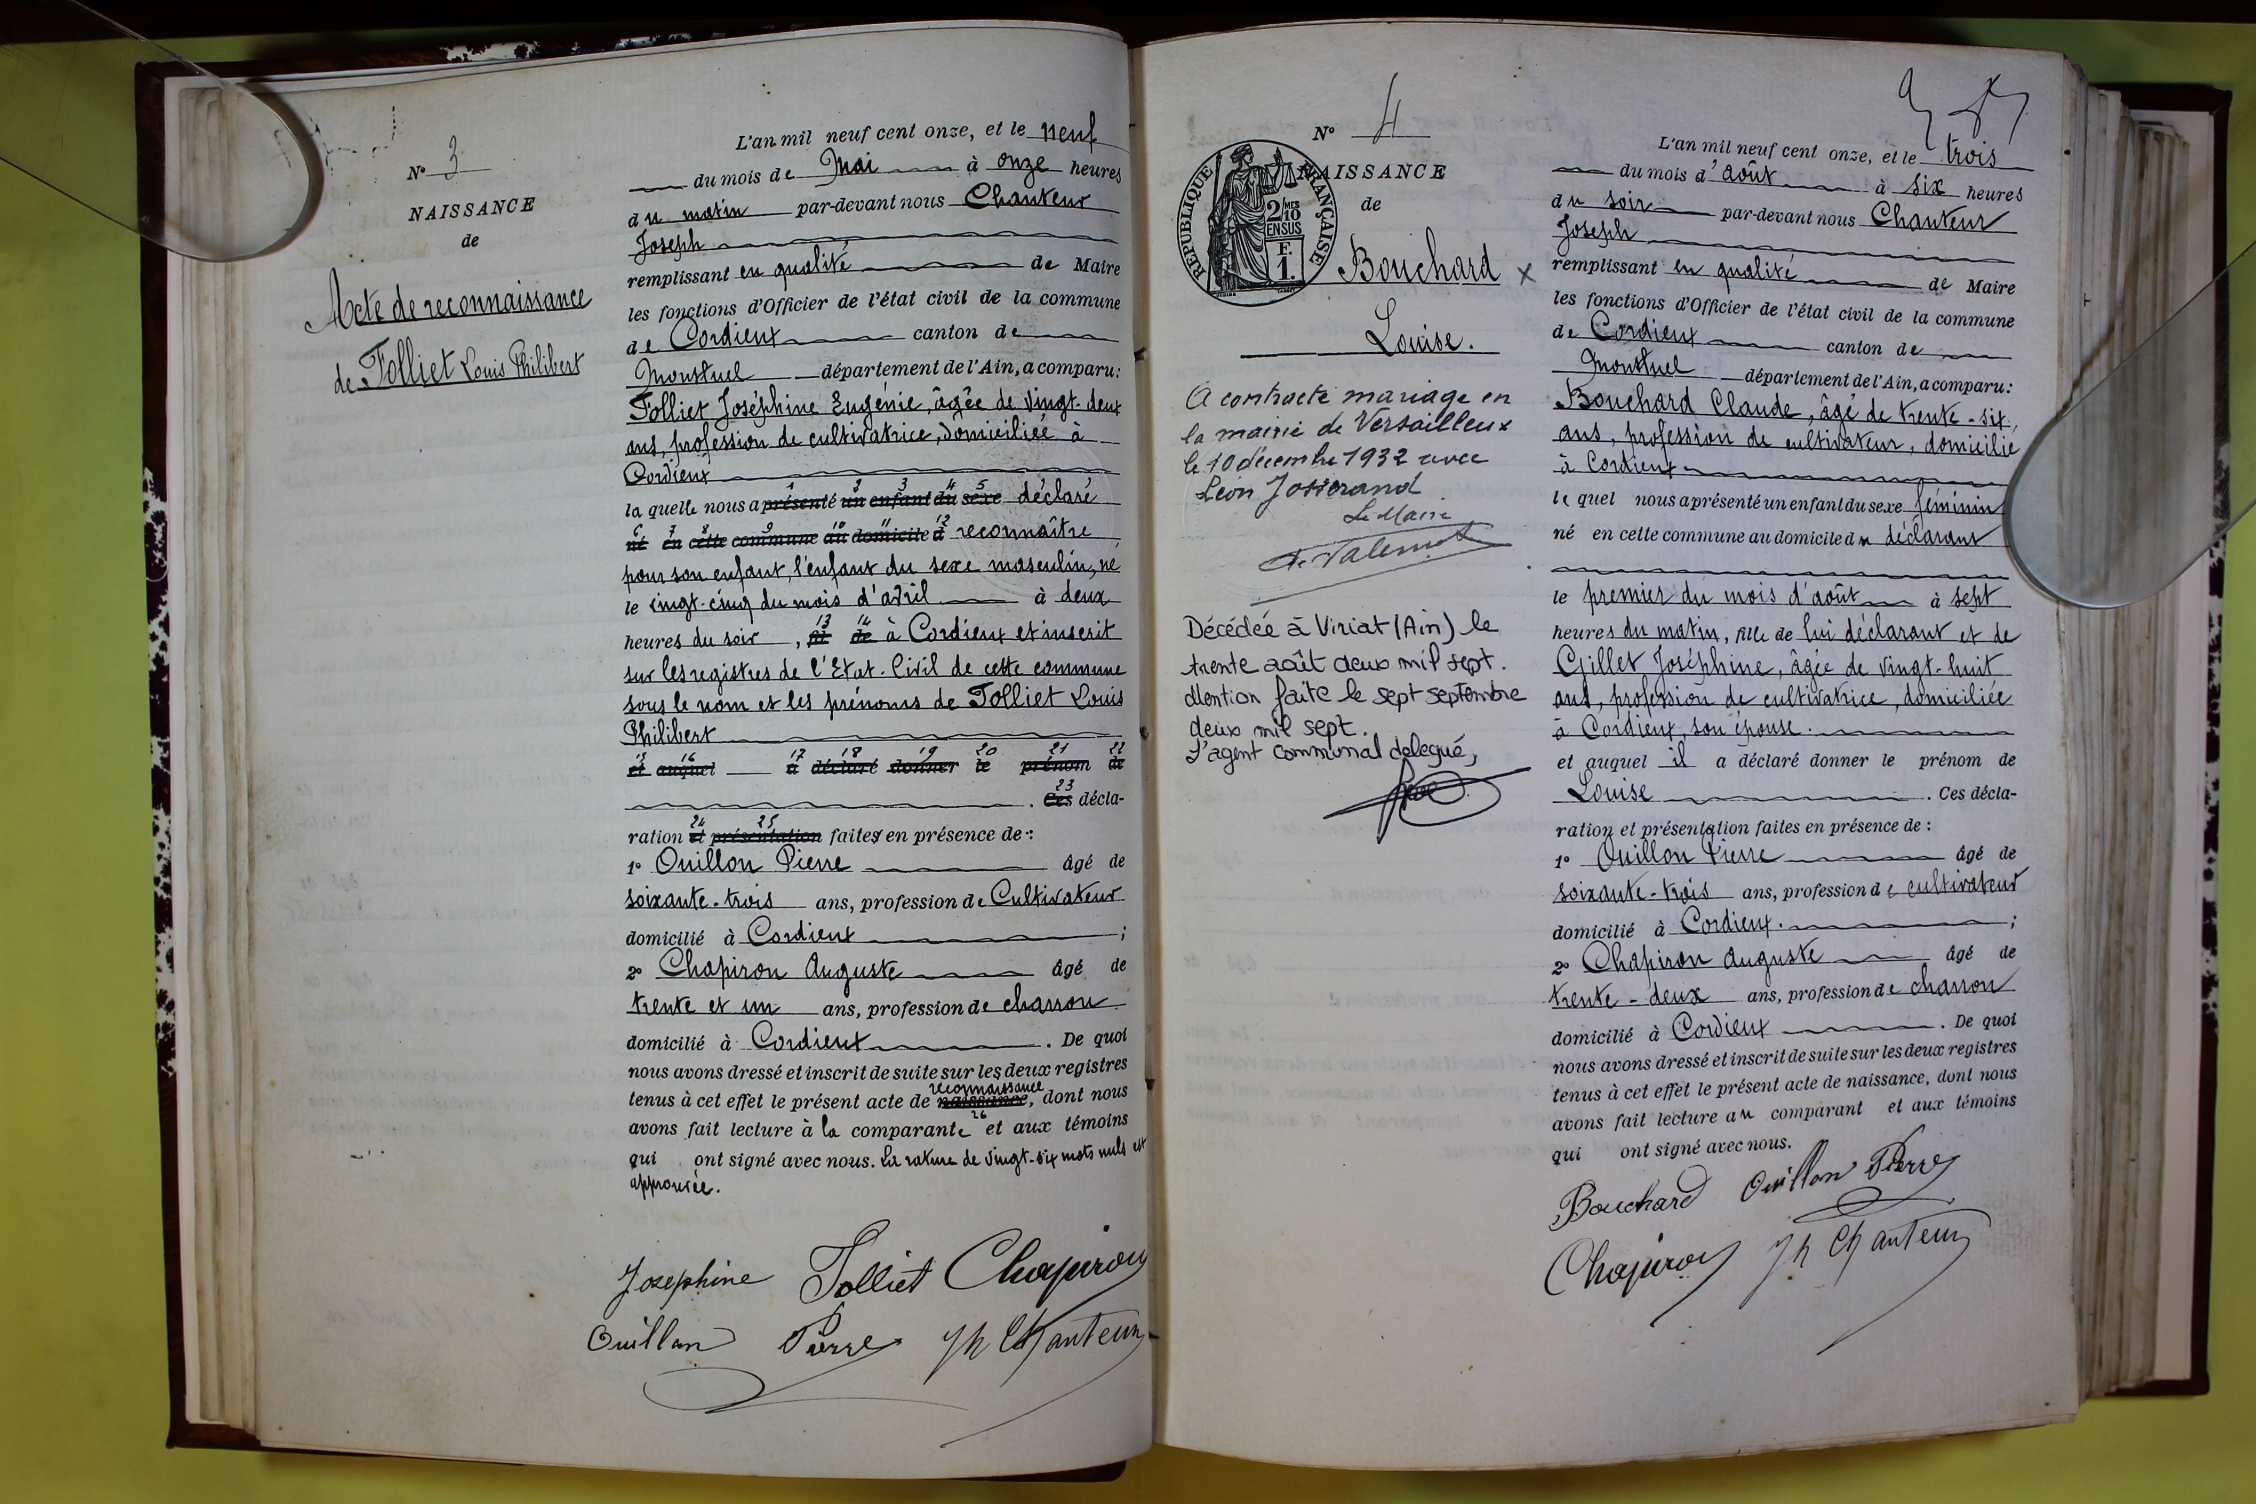 N° 3
NAISSANCE
de
Acte de reconnaissance
de Tolliet Louis Philibert
L'an mil neuf cent onze, et le neuf
du mois de Mai à onze heures
du matin par-devant nous Chanteur
Joseph
remplissant en qualité de Maire
les fonctions d'Officier de l'état civil de la commune
de Cordieux canton de
Montluel département de l'Ain, a comparu:
Tolliet Joséphine Eugénie, âgée de vingt-deux
ans, profession de cultivatrice, domiciliée à
Cordieux
1 2 3 4 5
la quelle nous a présenté un enfant du sexe déclaré
6 7 8 9 10 11 12
né en cette commune au domicile d reconnaître
pour son enfant, l'enfant du sexe masculin, né
le vingt-cinq du mois d'avril à deux
13 14
heures du soir, fil de à Cordieux et inscrit
sur les registres de l'Etat-Civil de cette commune
sous le nom et les prénoms de Tolliet Louis
Philibert
15 16 17 18 19 20 21 22
et auquel a déclaré donner le prénom de
23
. Ces décla-
24 25
ration et présentation faites en présence de :
1° Ouillon Pierre âgé de
soixante-trois ans, profession de Cultivateur
domicilié à Cordieux ;
2° Chapiron Auguste âgé de
trente et un ans, profession de charron
domicilié à Cordieux. De quoi
nous avons dressé et inscrit de suite sur les deux registres
reconnaissance
tenus à cet effet le présent acte de naissance, dont nous
26
avons fait lecture à la comparante et aux témoins
qui ont signé avec nous. La rature de vingt-six mots nuls est
approuvée.
Josephine Tolliet Chapiron
Ouillon Pierre Jh Chanteur
N° 4
NAISSANCE
de
RÉPUBLIQUE FRANÇAISE
2/10 MES
EN SUS
F.
1.
Bouchard x
Louise.
A contracté mariage en
la mairie de Versailleux
le 10 décembre 1932 avec
Léon Josserand
Le Maire
Décédée à Viriat (Ain) le
trente août deux mil sept.
Mention faite le sept septembre
deux mil sept.
L'agent communal délégué,
L'an mil neuf cent onze, et le trois
du mois d'août à six heures
du soir par-devant nous Chanteur
Joseph
remplissant en qualité de Maire
les fonctions d'Officier de l'état civil de la commune
de Cordieux canton de
Montluel département de l'Ain, a comparu:
Bouchard Claude, âgé de trente-six,
ans, profession de cultivateur, domicilié
à Cordieux
le quel nous a présenté un enfant du sexe féminin
né en cette commune au domicile du déclarant
le premier du mois d'août à sept
heures du matin, fille de lui déclarant et de
Gillet Joséphine, âgée de vingt-huit
ans, profession de cultivatrice, domiciliée
à Cordieux, son épouse.
et auquel il a déclaré donner le prénom de
Louise . Ces décla-
ration et présentation faites en présence de :
1° Ouillon Pierre âgé de
soixante-trois ans, profession de cultivateur
domicilié à Cordieux. ;
2° Chapiron Auguste âgé de
trente-deux ans, profession de charron
domicilié à Cordieux . De quoi
nous avons dressé et inscrit de suite sur les deux registres
tenus à cet effet le présent acte de naissance, dont nous
avons fait lecture au comparant et aux témoins
qui ont signé avec nous.
Bouchard Ouillon Pierre
Chapiron Jh Chanteur